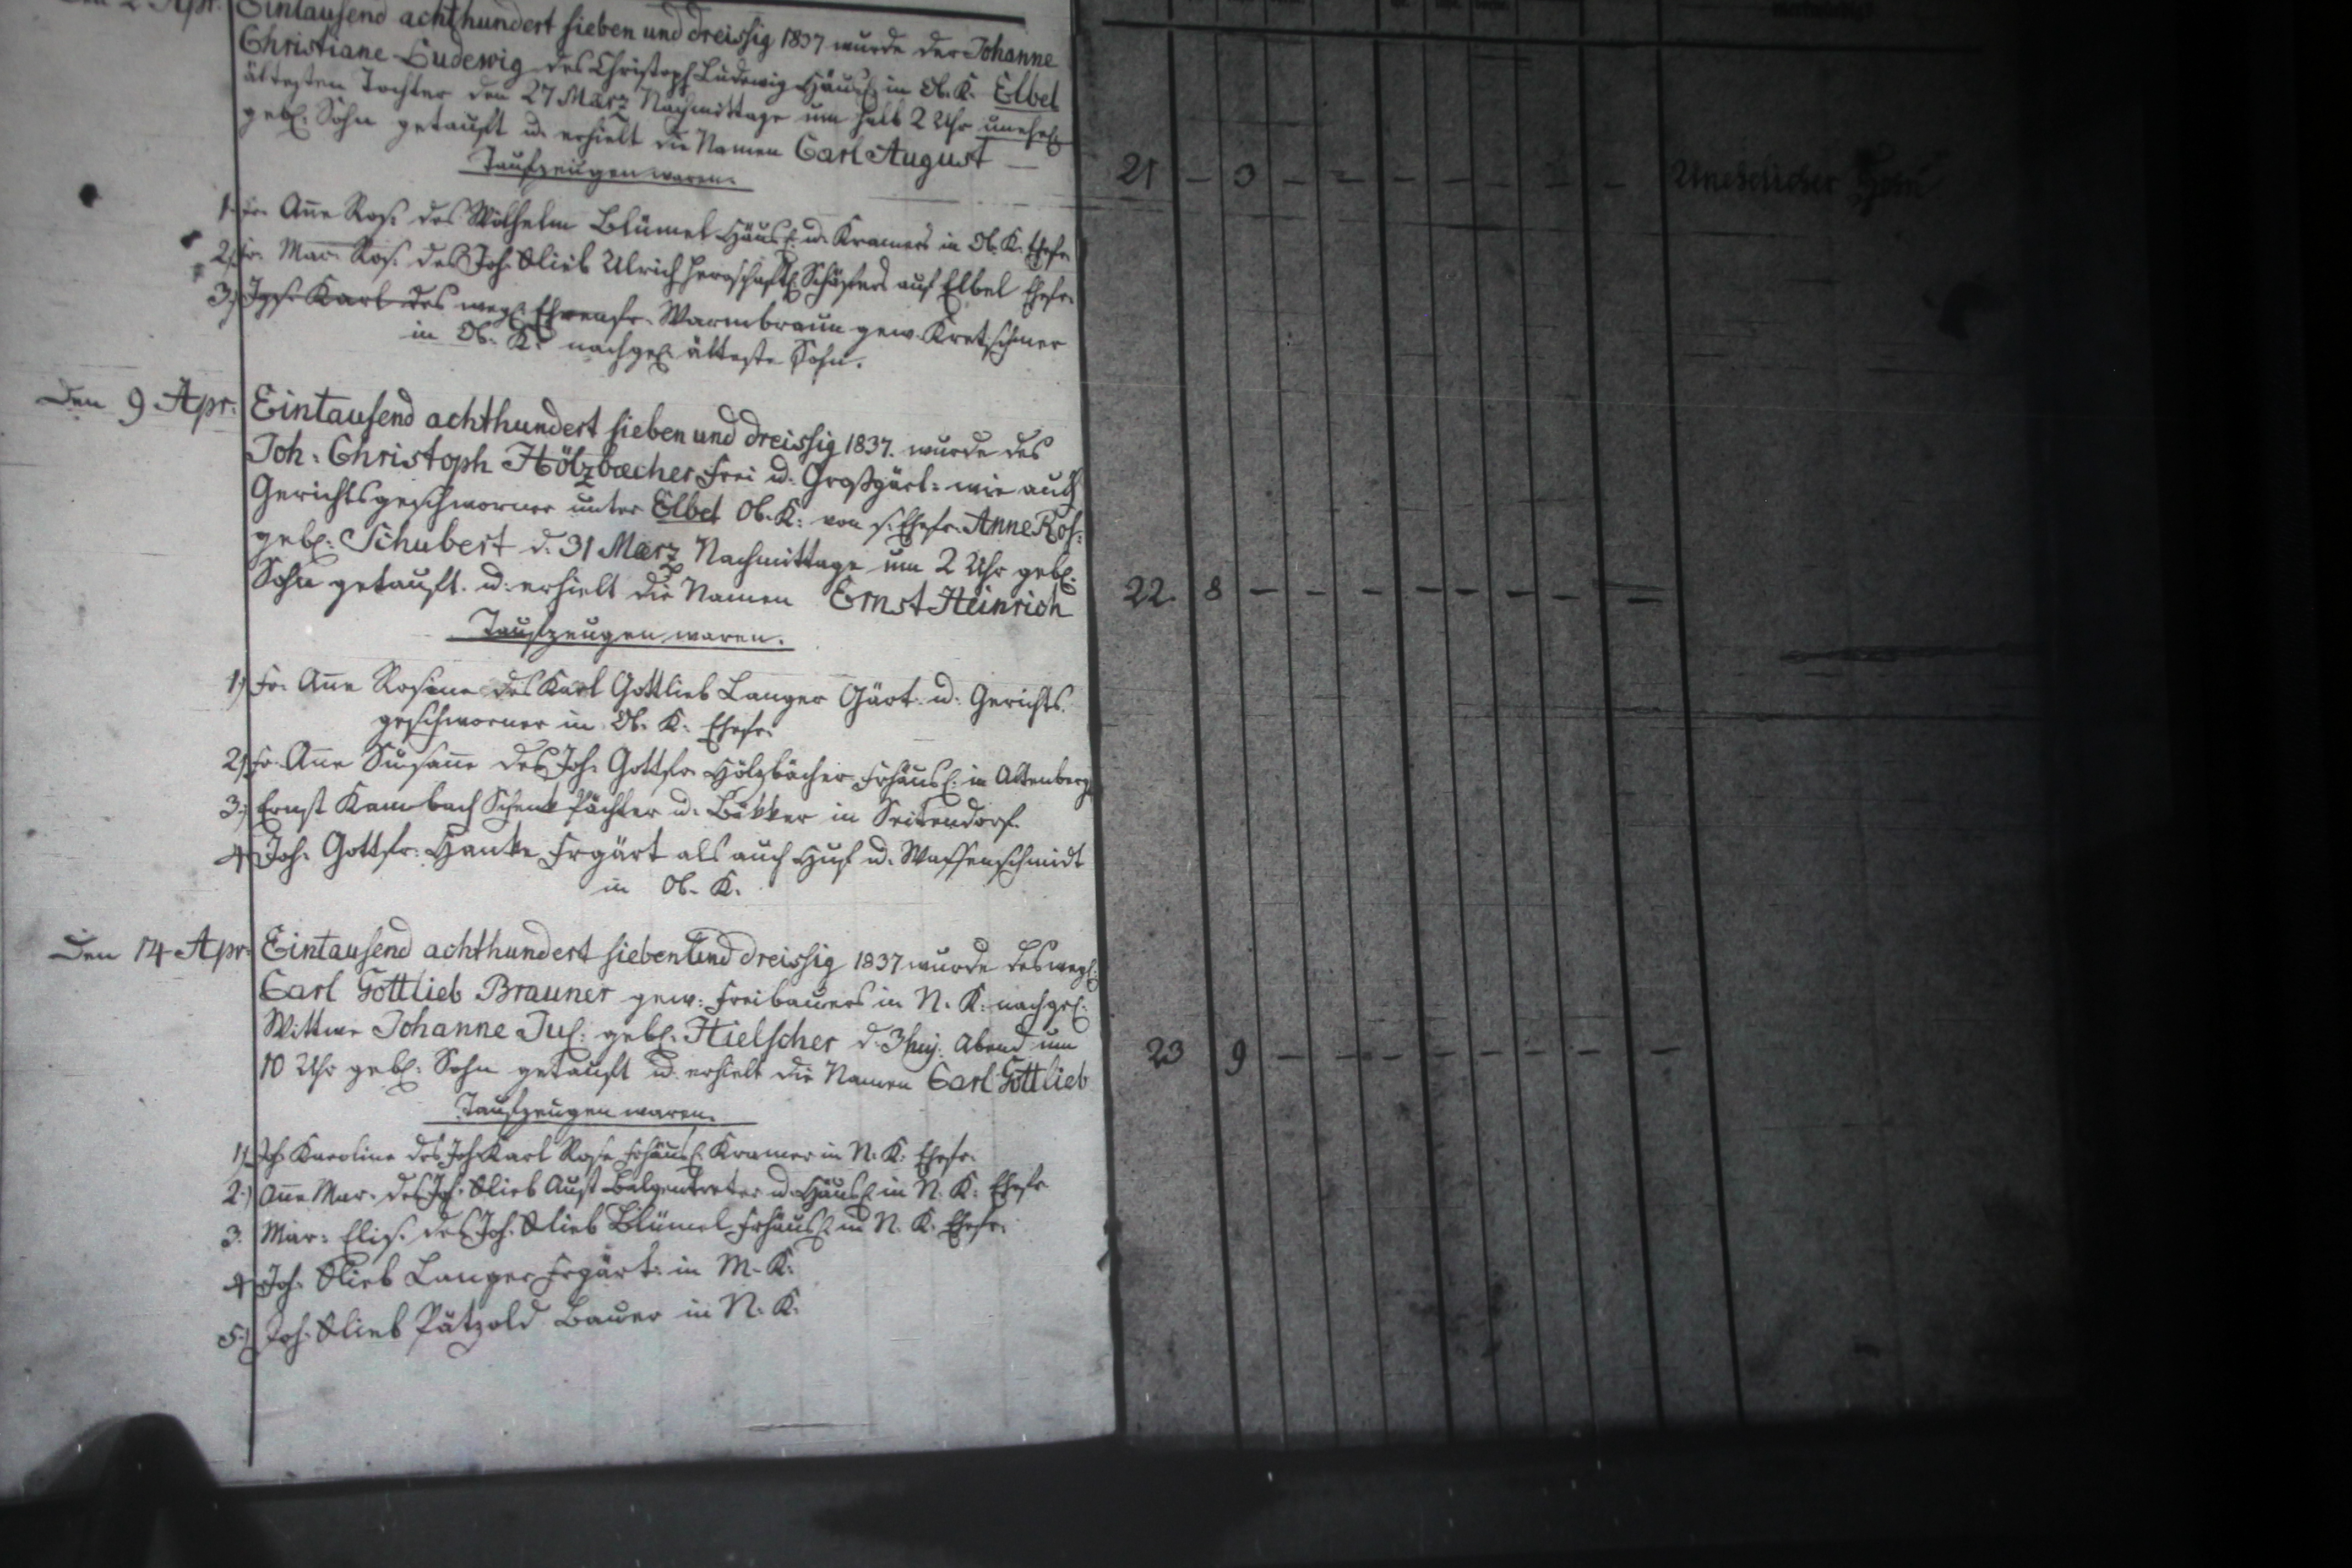 Den 2 Apr.
Eintausend achthundert sieben und dreissig 1837 wurde der Johanne
Christiane Ludewig des Christoph Ludewig Häusl. in Ob. K. Elbel
ältesten Tochter den 27 März Nachmittags um halb 2 Uhr unehel.
gebl. Sohn getauft u. erhielt die Namen Carl August —
Taufzeugen waren.
1. Fr. Anne Ros. des Wilhelm Blümel Häusl. u. Kramers in Ob. K. Ehefr.
2. Fr. Mar. Ros. des Joh. Glieb Ulrich herrschaftl. Schäfers auf Elbel Ehefr.
3.) Karl des weyl. Ehrenfr. Warmbraun gew. Kretschmer
in Ob. K. nachgel. älteste Sohn.
21 — 3 — — — — — — — Unehelicher Sohn
Den 9 Apr.
Eintausend achthundert sieben und dreissig 1837. wurde des
Joh: Christoph Hölzbecher Frei u. Großgärt: wie auch
Gerichtsgeschworner unter Elbel Ob. K: von s. Ehefr. Anne Ros:
gebl: Schubert d. 31 März Nachmittags um 2 Uhr gebl.
Sohn getauft u. erhielt die Namen Ernst Heinrich
Taufzeugen waren.
22. 8 — — — — — — — —
1.) Fr. Anne Rosine des Karl Gottlieb Langer Gärt. u. Gerichts
geschworner in Ob. K. Ehefr.
2.) Fr. Anne Susanne des Joh. Gottfr. Hölzbächer Frhäusl. in Altenberg
3.) Ernst Kambach Schenk Pächter u. Bäkker in Seitendorf
4. Joh. Gottfr. Hanke Frgärt als auch Huf u. Waffenschmidt
in Ob. K.
Den 14 Apr.
Eintausend achthundert sieben und dreissig 1837 wurde des weyl.
Carl Gottlieb Brauner gew. Freibauers in N. K: nachgel.
Wittwe Johanne Jul. gebl. Hielscher d. 3 huj. Abend um
10 Uhr gebl: Sohn getauft u. erhielt die Namen Carl Gottlieb
Taufzeugen waren.
23 9 — — — — — — — —
1.) Joh. Karoline des Joh. Karl Rose Frhäusl. Kramer in N. K: Ehefr.
2.) Anne Mar. des Joh. Glieb Aust Balgentreter u. Häusl. in N. K: Ehefr
3. Mar: Elis. des Joh. Glieb Blümel Frhäusl. in N. K. Ehefr.
4. Joh. Glieb Langer Frgärt: in M. K.
5.) Joh. Glieb Pätzold Bauer in N. K.